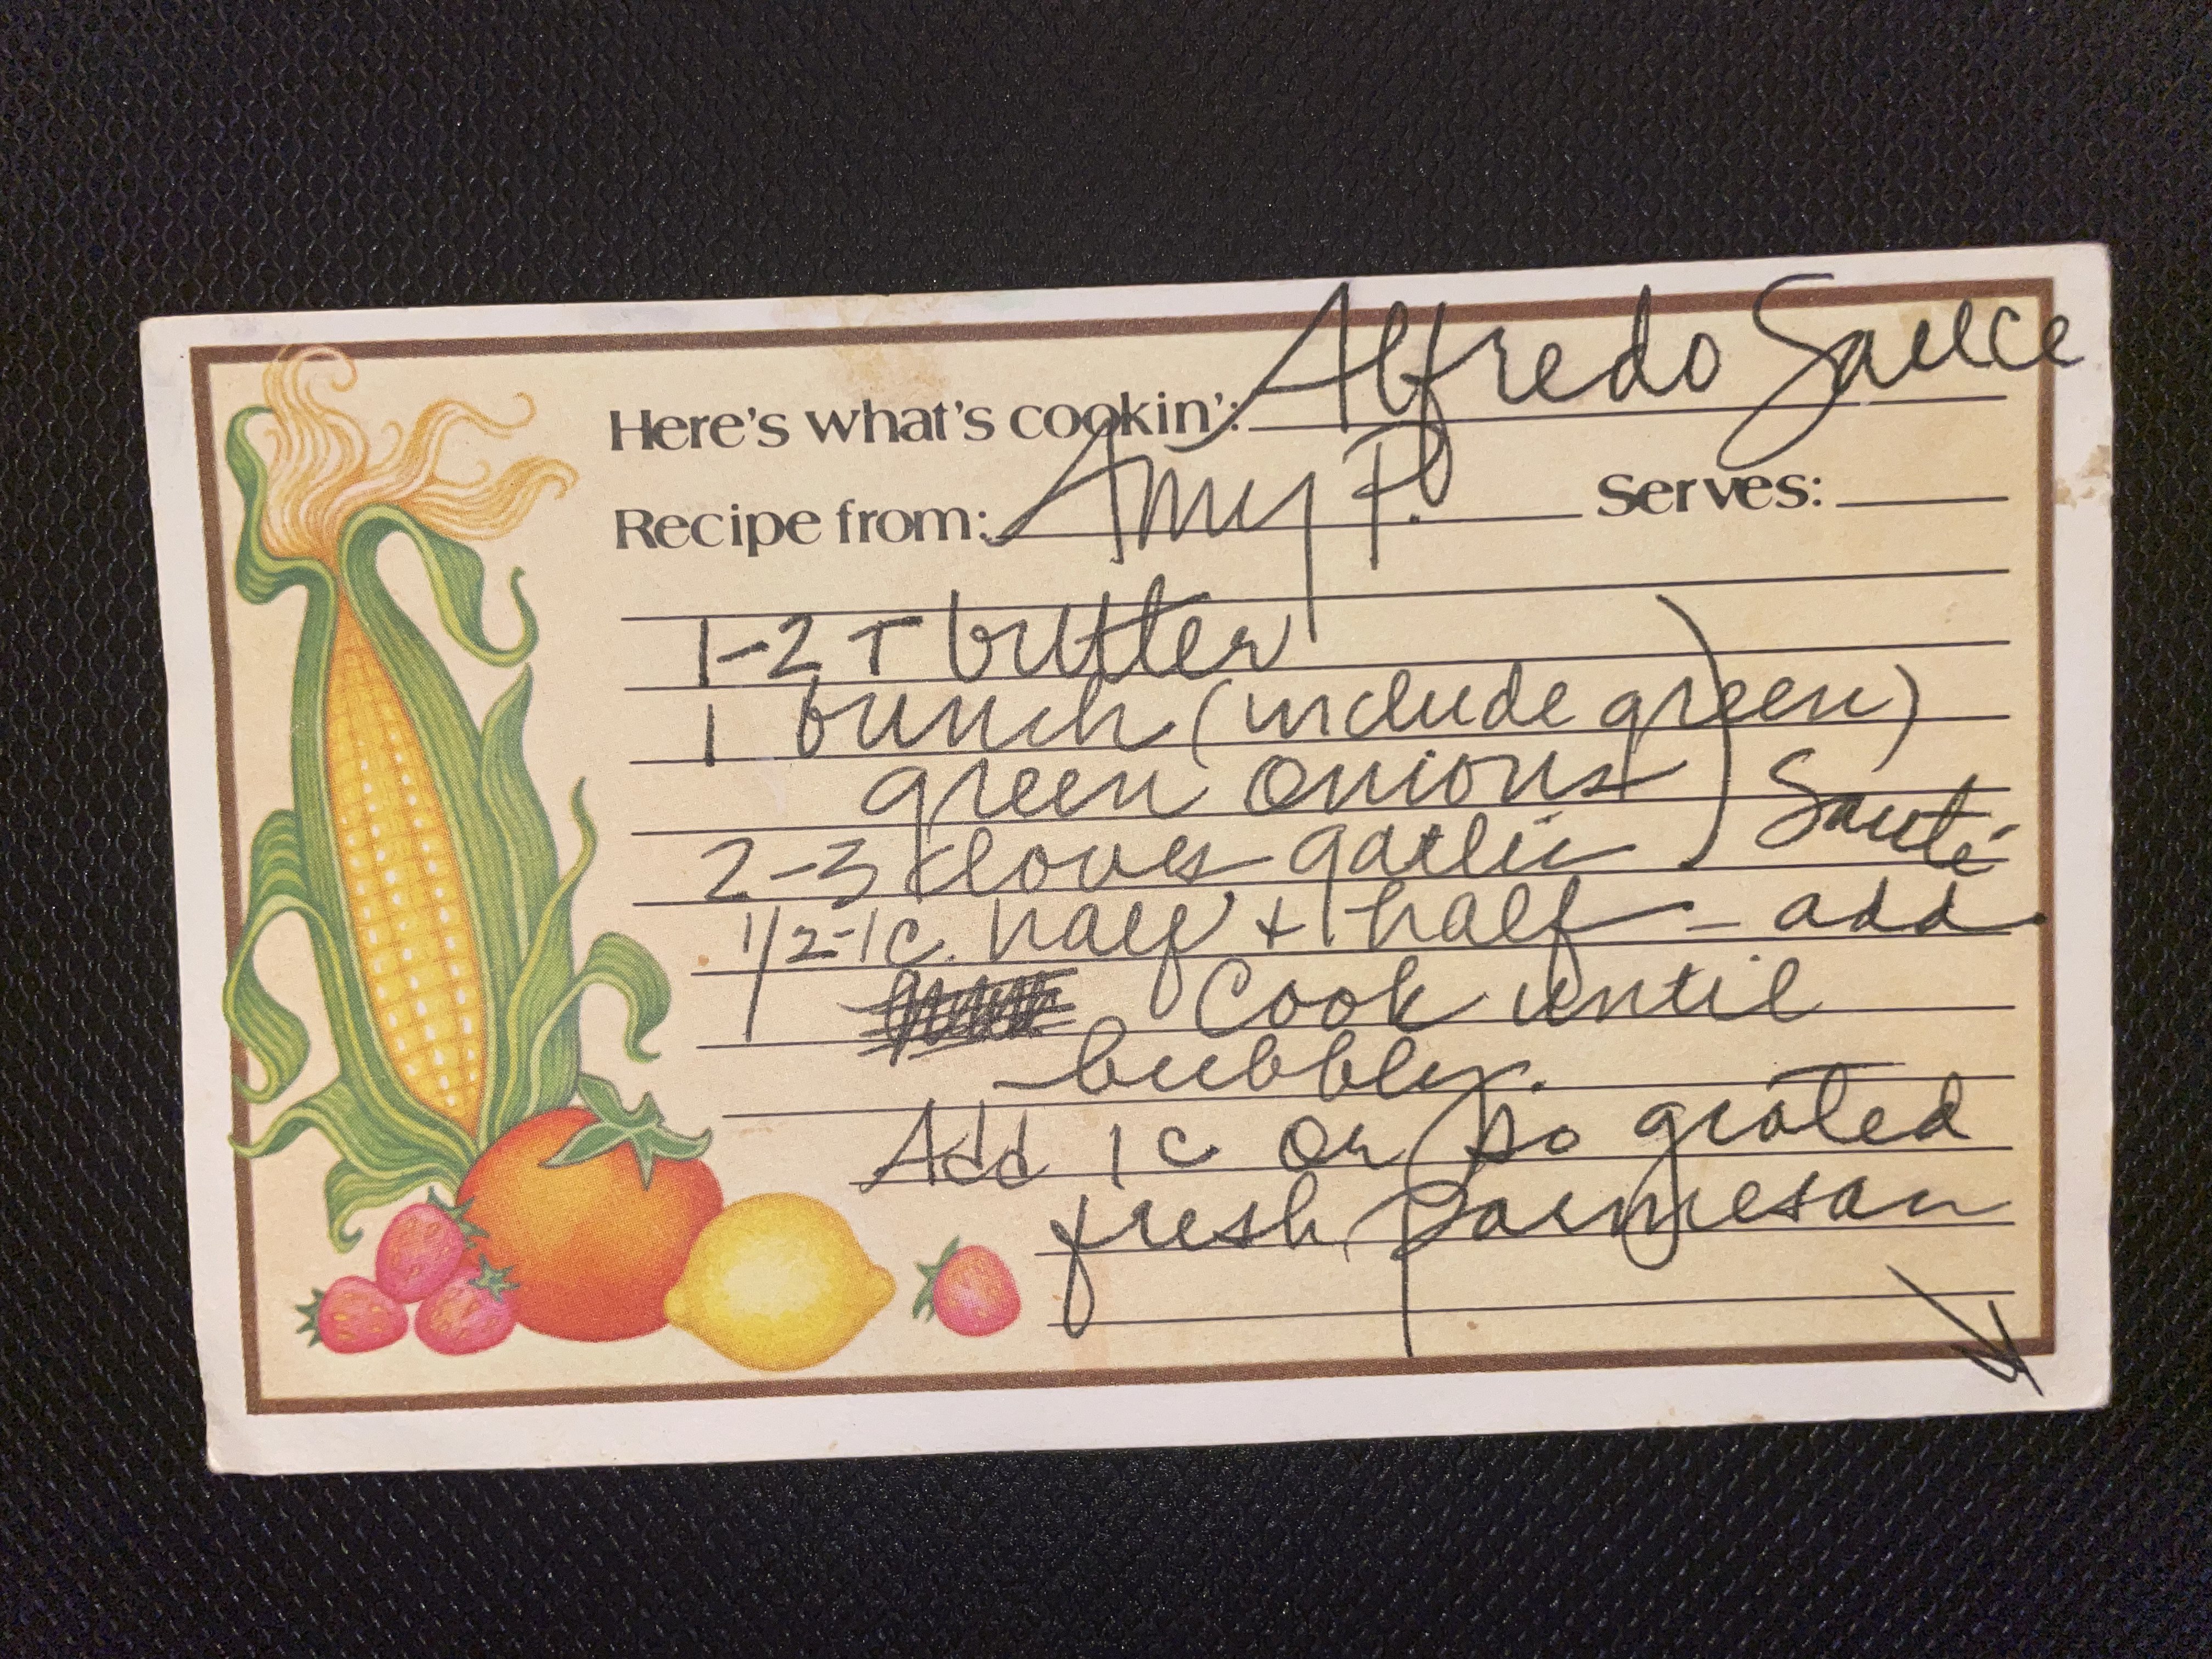 Here's what's cookin': Alfredo Sauce
Recipe from: Amy P. Serves:
1-2 T butter
1 bunch (include green)
green onions
2-3 cloves garlic ) Sauté
1/2-1 c. half + half - add
Cook until
bubbly.
Add 1 c or so grated
fresh Parmesan